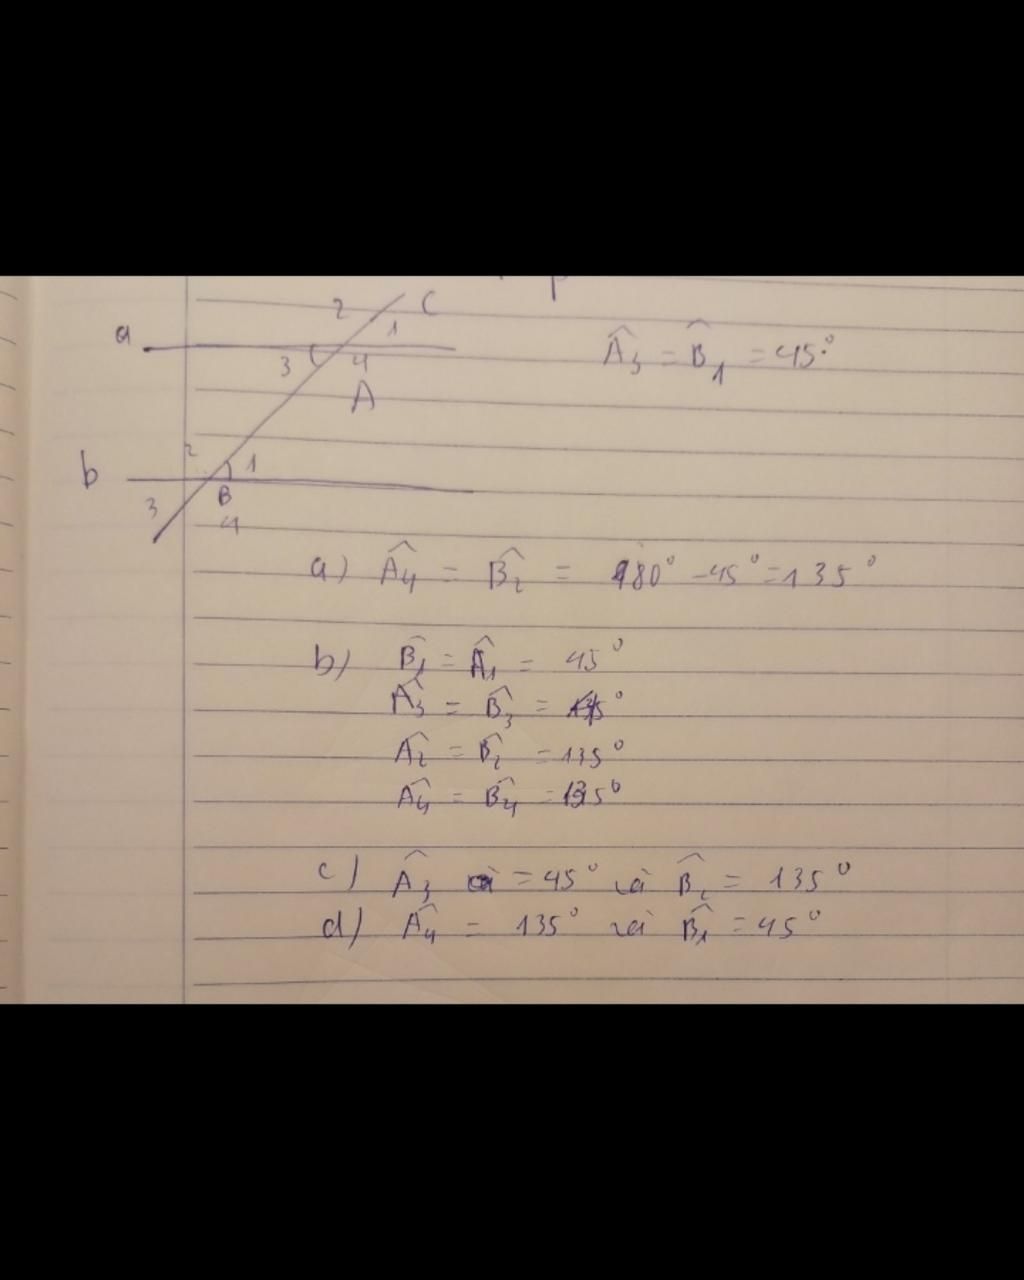 2 C
1
a
3 4
A
Â₃ = B̂₁ = 45°
2
b 1
B
3
4
a) Â₄ = B̂₂ = 180° - 45° = 135°
b) B̂₁ = Â₁ = 45°
Â₃ = B̂₃ =
Â₂ = B̂₂ = 135°
Â₄ = B̂₄ = 135°
c) Â₃ = 45° và B̂₂ = 135°
d) Â₄ = 135° và B̂₁ = 45°